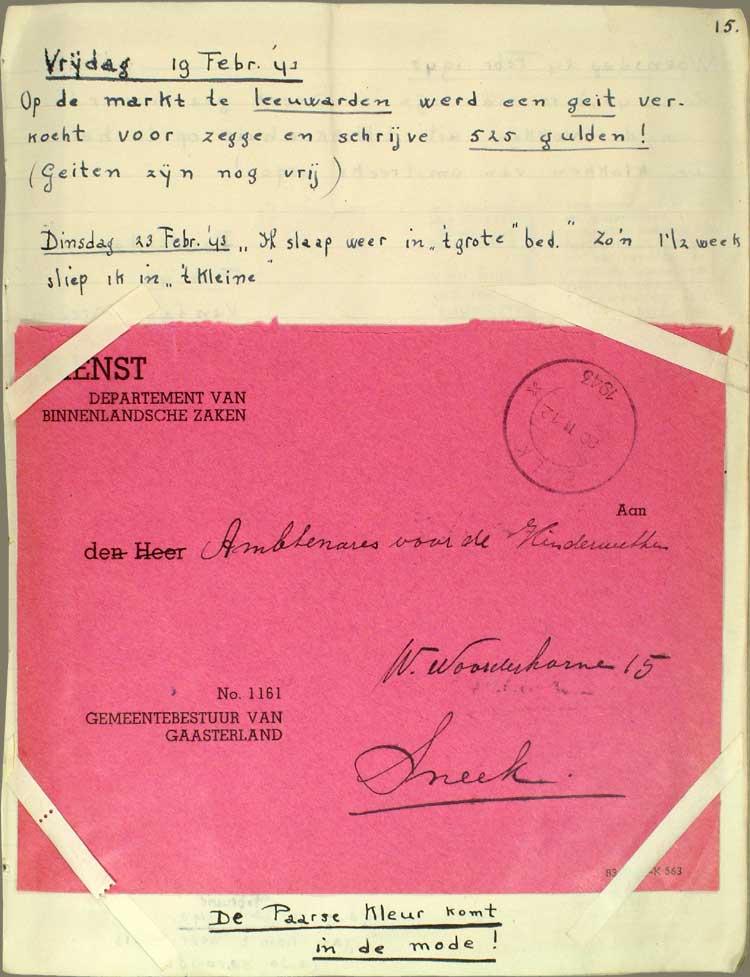 15.
Vrijdag 19 Febr. '43
Op de markt te leeuwarden werd een geit ver-
kocht voor zegge en schrijve 525 gulden!
(Geiten zijn nog vrij)
Dinsdag 23 Febr. '43 „Ik slaap weer in „'t grote" bed." Zo'n 1 1/2 week
sliep ik in „'t Kleine"
IENST
DEPARTEMENT VAN
BINNENLANDSCHE ZAKEN
1943
Aan
den Heer Ambtenares voor de Kinderwetten
W. Noorderhorne 15
No. 1161
GEMEENTEBESTUUR VAN
GAASTERLAND
Sneek.
-K 563
De Paarse Kleur komt
in de mode!